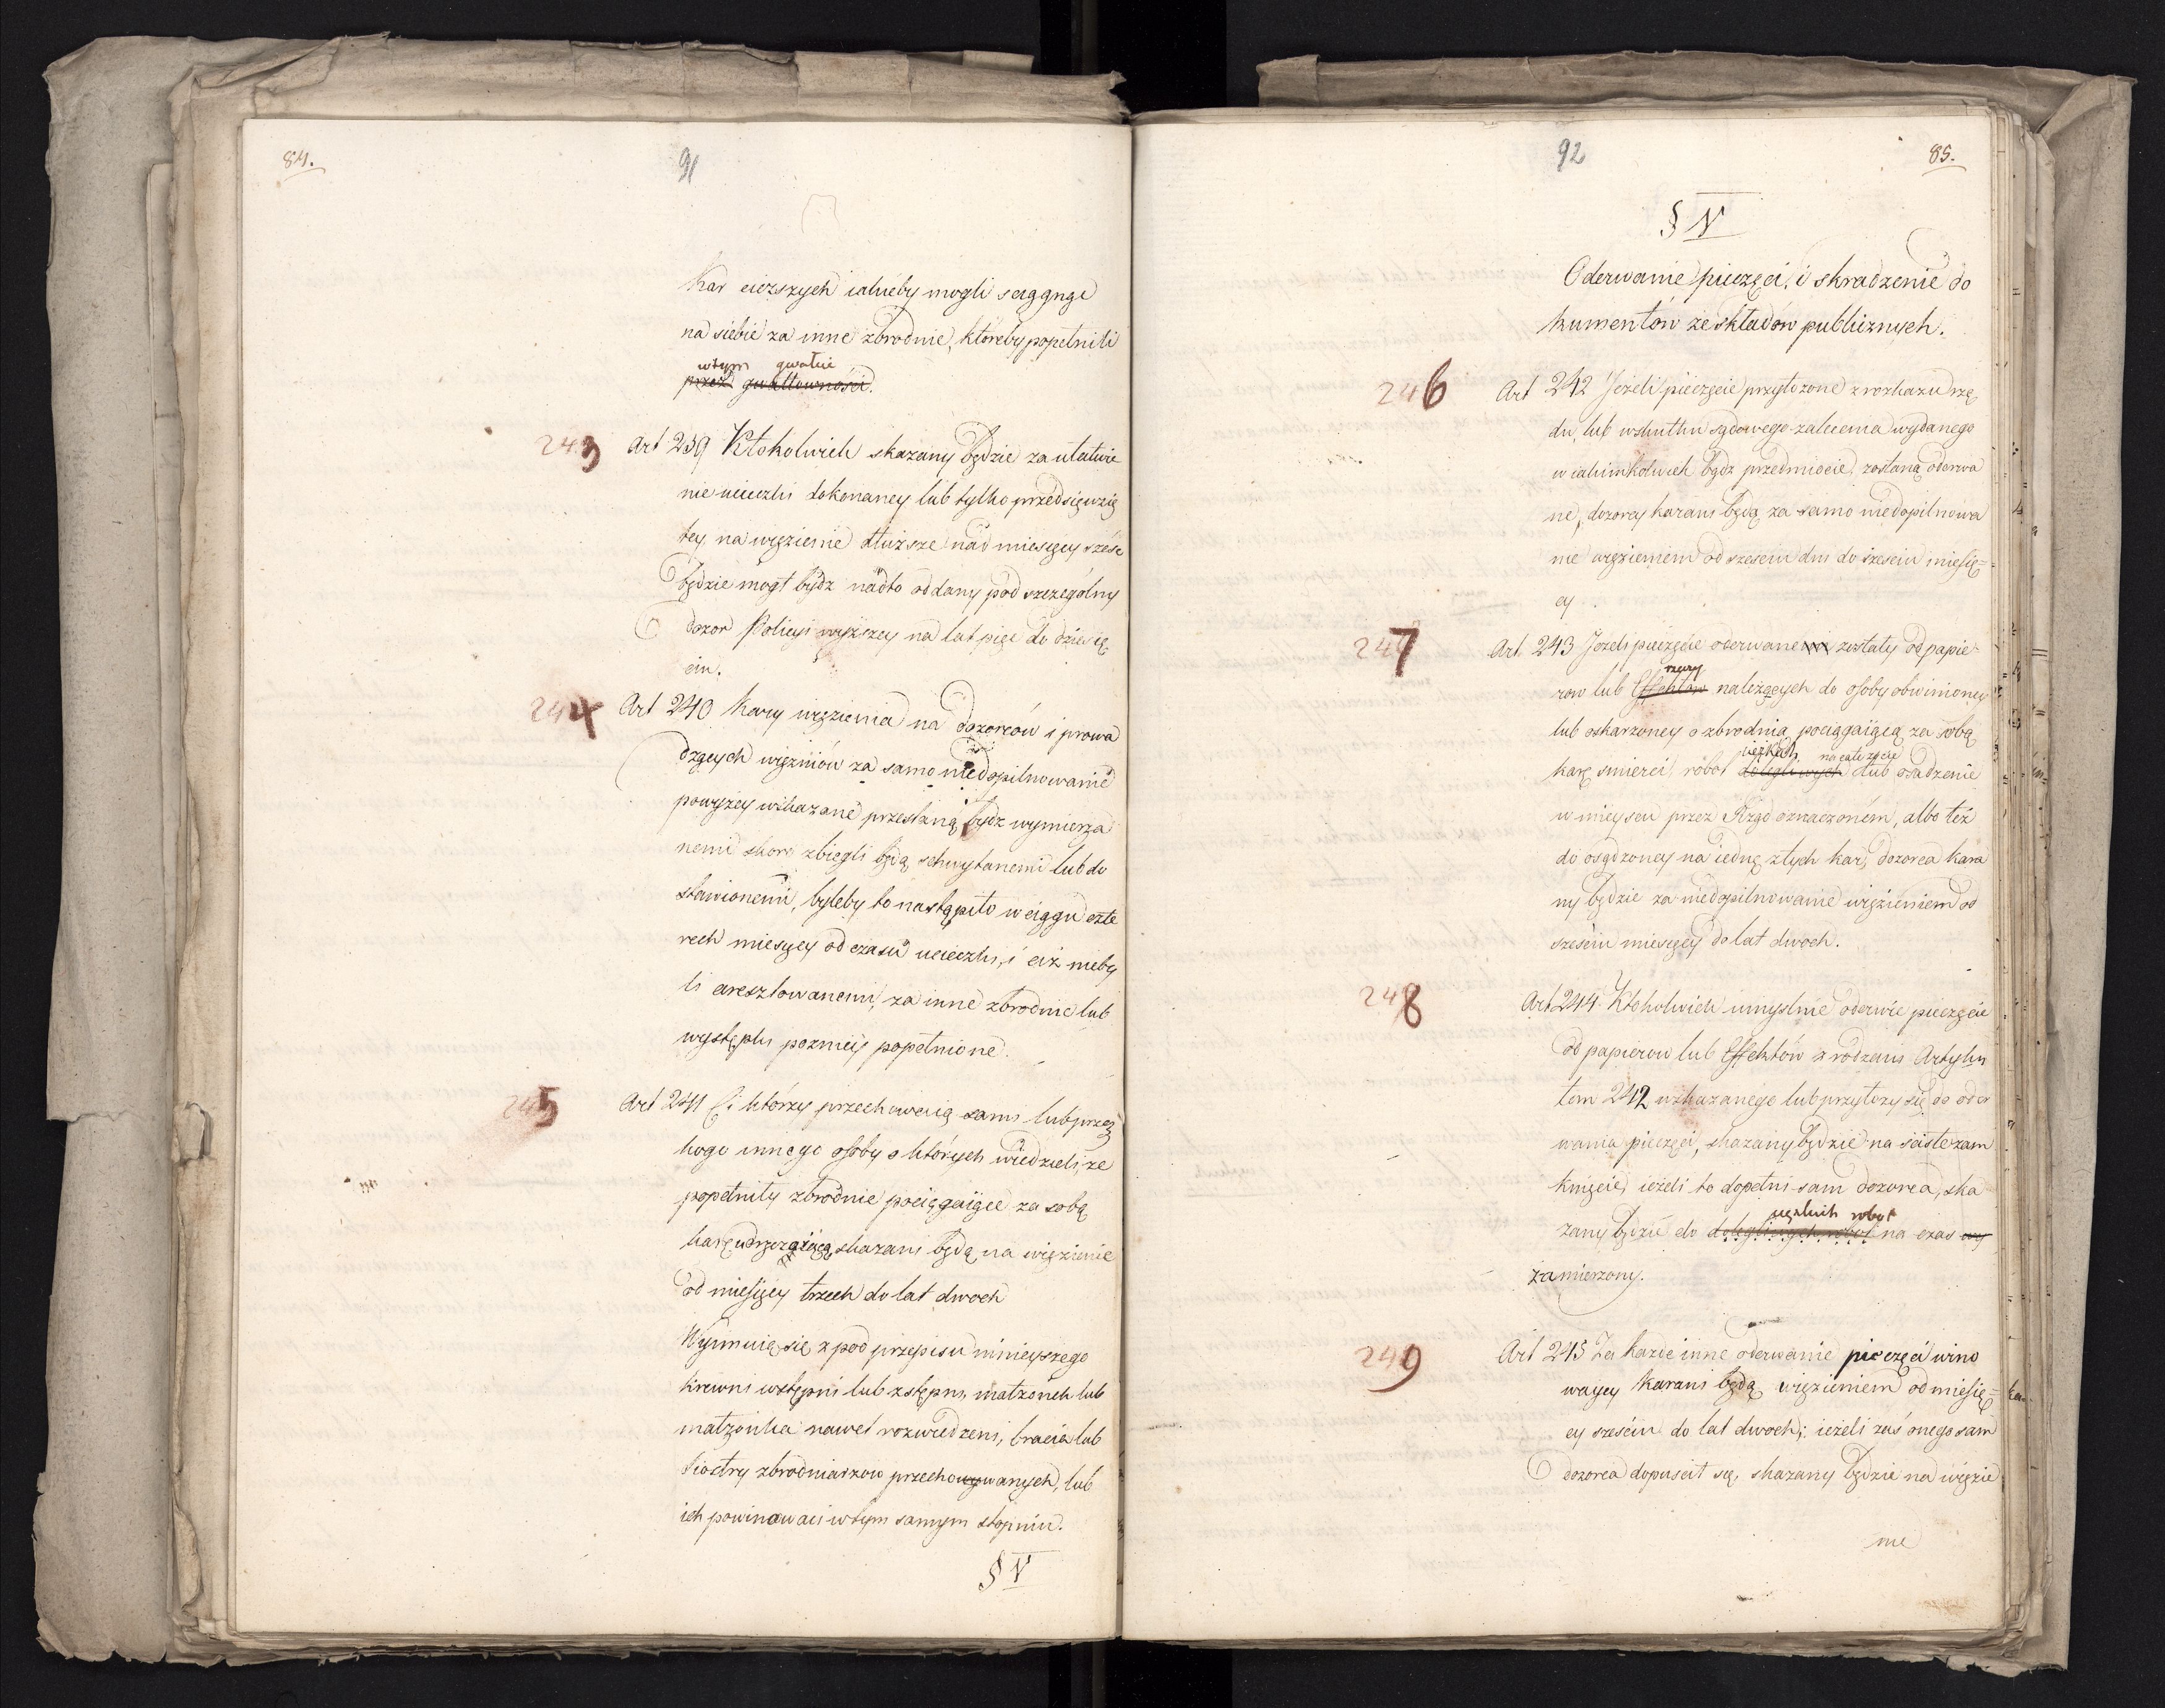 84.
91
Kar cięższych iakieby mogli sciągngć
na siebie za inne zbrodnie, któreby popełnili
wtym gwałcie
przez gwałtowności.
243 Art 239 Ktokolwiek skazany będzie za ułatwie
nie ucieczki dokonaney lub tylko przedsięwzię
tey, na więzienie dłuższe nad miesięcy sześć
będzie mógł bydz nadto oddany pod szczególny
dozor Policyi wyższey na lat pięć do dziesię
ciu.
244 Art 240 Kary więzienia na dozorców i prowa
dzących więzniów za samo niedopilnowanie
powyżey wskazane przestaną bydz wymierza
nemi skoro zbiegli będą schwytanemi lub do
stawionemi, byleby to nastąpiło w ciągu czte
rech miesięcy od czasu ucieczki, i ciż nieby
li aresztowanemi, za inne zbrodnie lub
występki pozniey popełnione.
245 Art 241 Ci którzy przechowaią sami lub przez
kogo innego osoby o których wiedzieli, że
popełniły zbrodnie pociągaiące za sobą
karę udręczaiącą, skazani będą na więzienie
od miesięcy trzech do lat dwoch
Wyimuią się z pod przepisu ninieyszego
krewni wstępni lub zstępni, małżonek lub
małżonka nawet rozwiedzeni, bracia lub
siostry zbrodniarzow przechowywanych, lub
ich powinowaci w tym samym stopniu.
§ V
92
85.
§ V
Oderwanie pieczęci, i skradzenie do
kumentów ze składów publicznych.
246 Art 242 Jeżeli pieczęcie przyłożone z rozkazu rzą
du, lub w skutku sądowego zalecenia wydanego
w iakimkolwiek bądz przedmiocie, zostaną oderwa
ne, dozorcy karani będą za samo niedopilnowa
nie więzieniem od szesciu dni do szesciu miesię=
cy.
247 Art 243 Jeżeli pieczęcie oderwane zostały od papie=
rzeczy
row lub Effektów należących do osoby obwinioney
lub oskarżoney o zbrodnią pociągaiącą za sobą
ciężkich na całe życie
karę smierci, robot dolegliwych lub osadzenie
w mieyscu przez Rząd oznaczoném, albo téż
do osądzoney na iednę z tych kar, dozorca kara
ny będzie za niedopilnowanie więzieniem od
sześciu miesięcy do lat dwoch.
248 Art 244. Ktokolwiek umyslnie oderwie pieczęcie
od papierow lub Effektów z rodzaiu Artyku
łem 242 wskazanego lub przyłoży się do oder
wania pieczęci, skazany będzie na scisłe zam
knięcie, ieżeli to dopełni sam dozorca, ska
ciężkich robot
zany będzie do dolegliwych robot na czas wy
zamierzony.
249 Art 245 Za każde inne oderwanie pieczęci wino
waycy karani będą więzieniem od miesię=
cy sześciu do lat dwoch; ieżeli zaś onego sam
dozorca dopuscił się, skazany będzie na więzie
nie